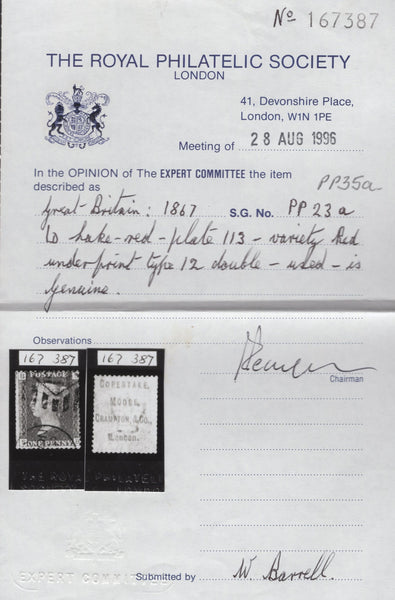 No 167387
THE ROYAL PHILATELIC SOCIETY
LONDON
41, Devonshire Place,
London, W1N 1PE
Meeting of 28 AUG 1996
In the OPINION of The EXPERT COMMITTEE the item
described as
PP35a
Great Britain: 1867 S.G. No. PP 23a
1D lake-red - plate 113 - variety Red
underprint type 12 double - used - is
genuine.
Observations
Chairman
167 387
167 387
POSTAGE
ONE PENNY
COPESTAKE,
MOORE,
CRAMPTON, & CO.,
London.
THE ROYA
PHILATEL
LONDO
EXPERT COMMITTEE
Submitted by W Barrell.